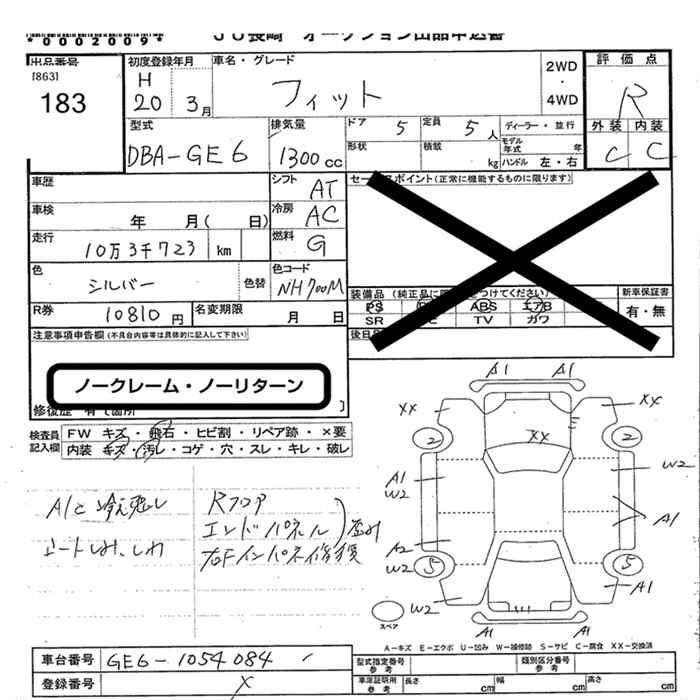 JU長崎 オークション出品申込書
*0002009*
出品番号
[863]
183
初度登録年月
H
20 3月
車名・グレード
フィット
2WD
・
4WD
評価点
R
外装 内装
C C
型式
DBA-GE6
排気量
1300cc
ドア 5
定員 5人
ディーラー・並行
形状
積載 kg
モデル年式 年
ハンドル 左・右
車歴
シフト AT
セールスポイント(正常に機能するものに限ります)
車検 年 月( 日)
冷房 AC
走行 10万3千723 km
燃料 G
色 シルバー 色替
色コード NH700M
装備品
新車保証書
PS ABS エアB
有・無
SR TV ガワ
R券 10810円
名変期限 月 日
注意事項申告欄(不具合内容等は具体的に記入して下さい)
後日
ノークレーム・ノーリターン
修復歴 有
検査員記入欄
FW キズ・飛石・ヒビ割・リペア跡・×要
内装 キズ・汚レ・コゲ・穴・スレ・キレ・破レ
A/C冷え悪し
シートしみ、しわ
Rフロア
エンドパネル
歪み
右Fインパネ修復
A1 A1
XX XX
2 2
XX
A1
W2
W2
A1
A2
W2
5 5
W2 A1
A1 A1
スペア
A-キズ E-エクボ U-凹み W-補修跡 S-サビ C-腐食 XX-交換済
車台番号 GE6-1054084
登録番号
型式指定番号 参考
類別区分番号 参考
車庫証明用 参考 長さ cm 幅 cm 高さ cm